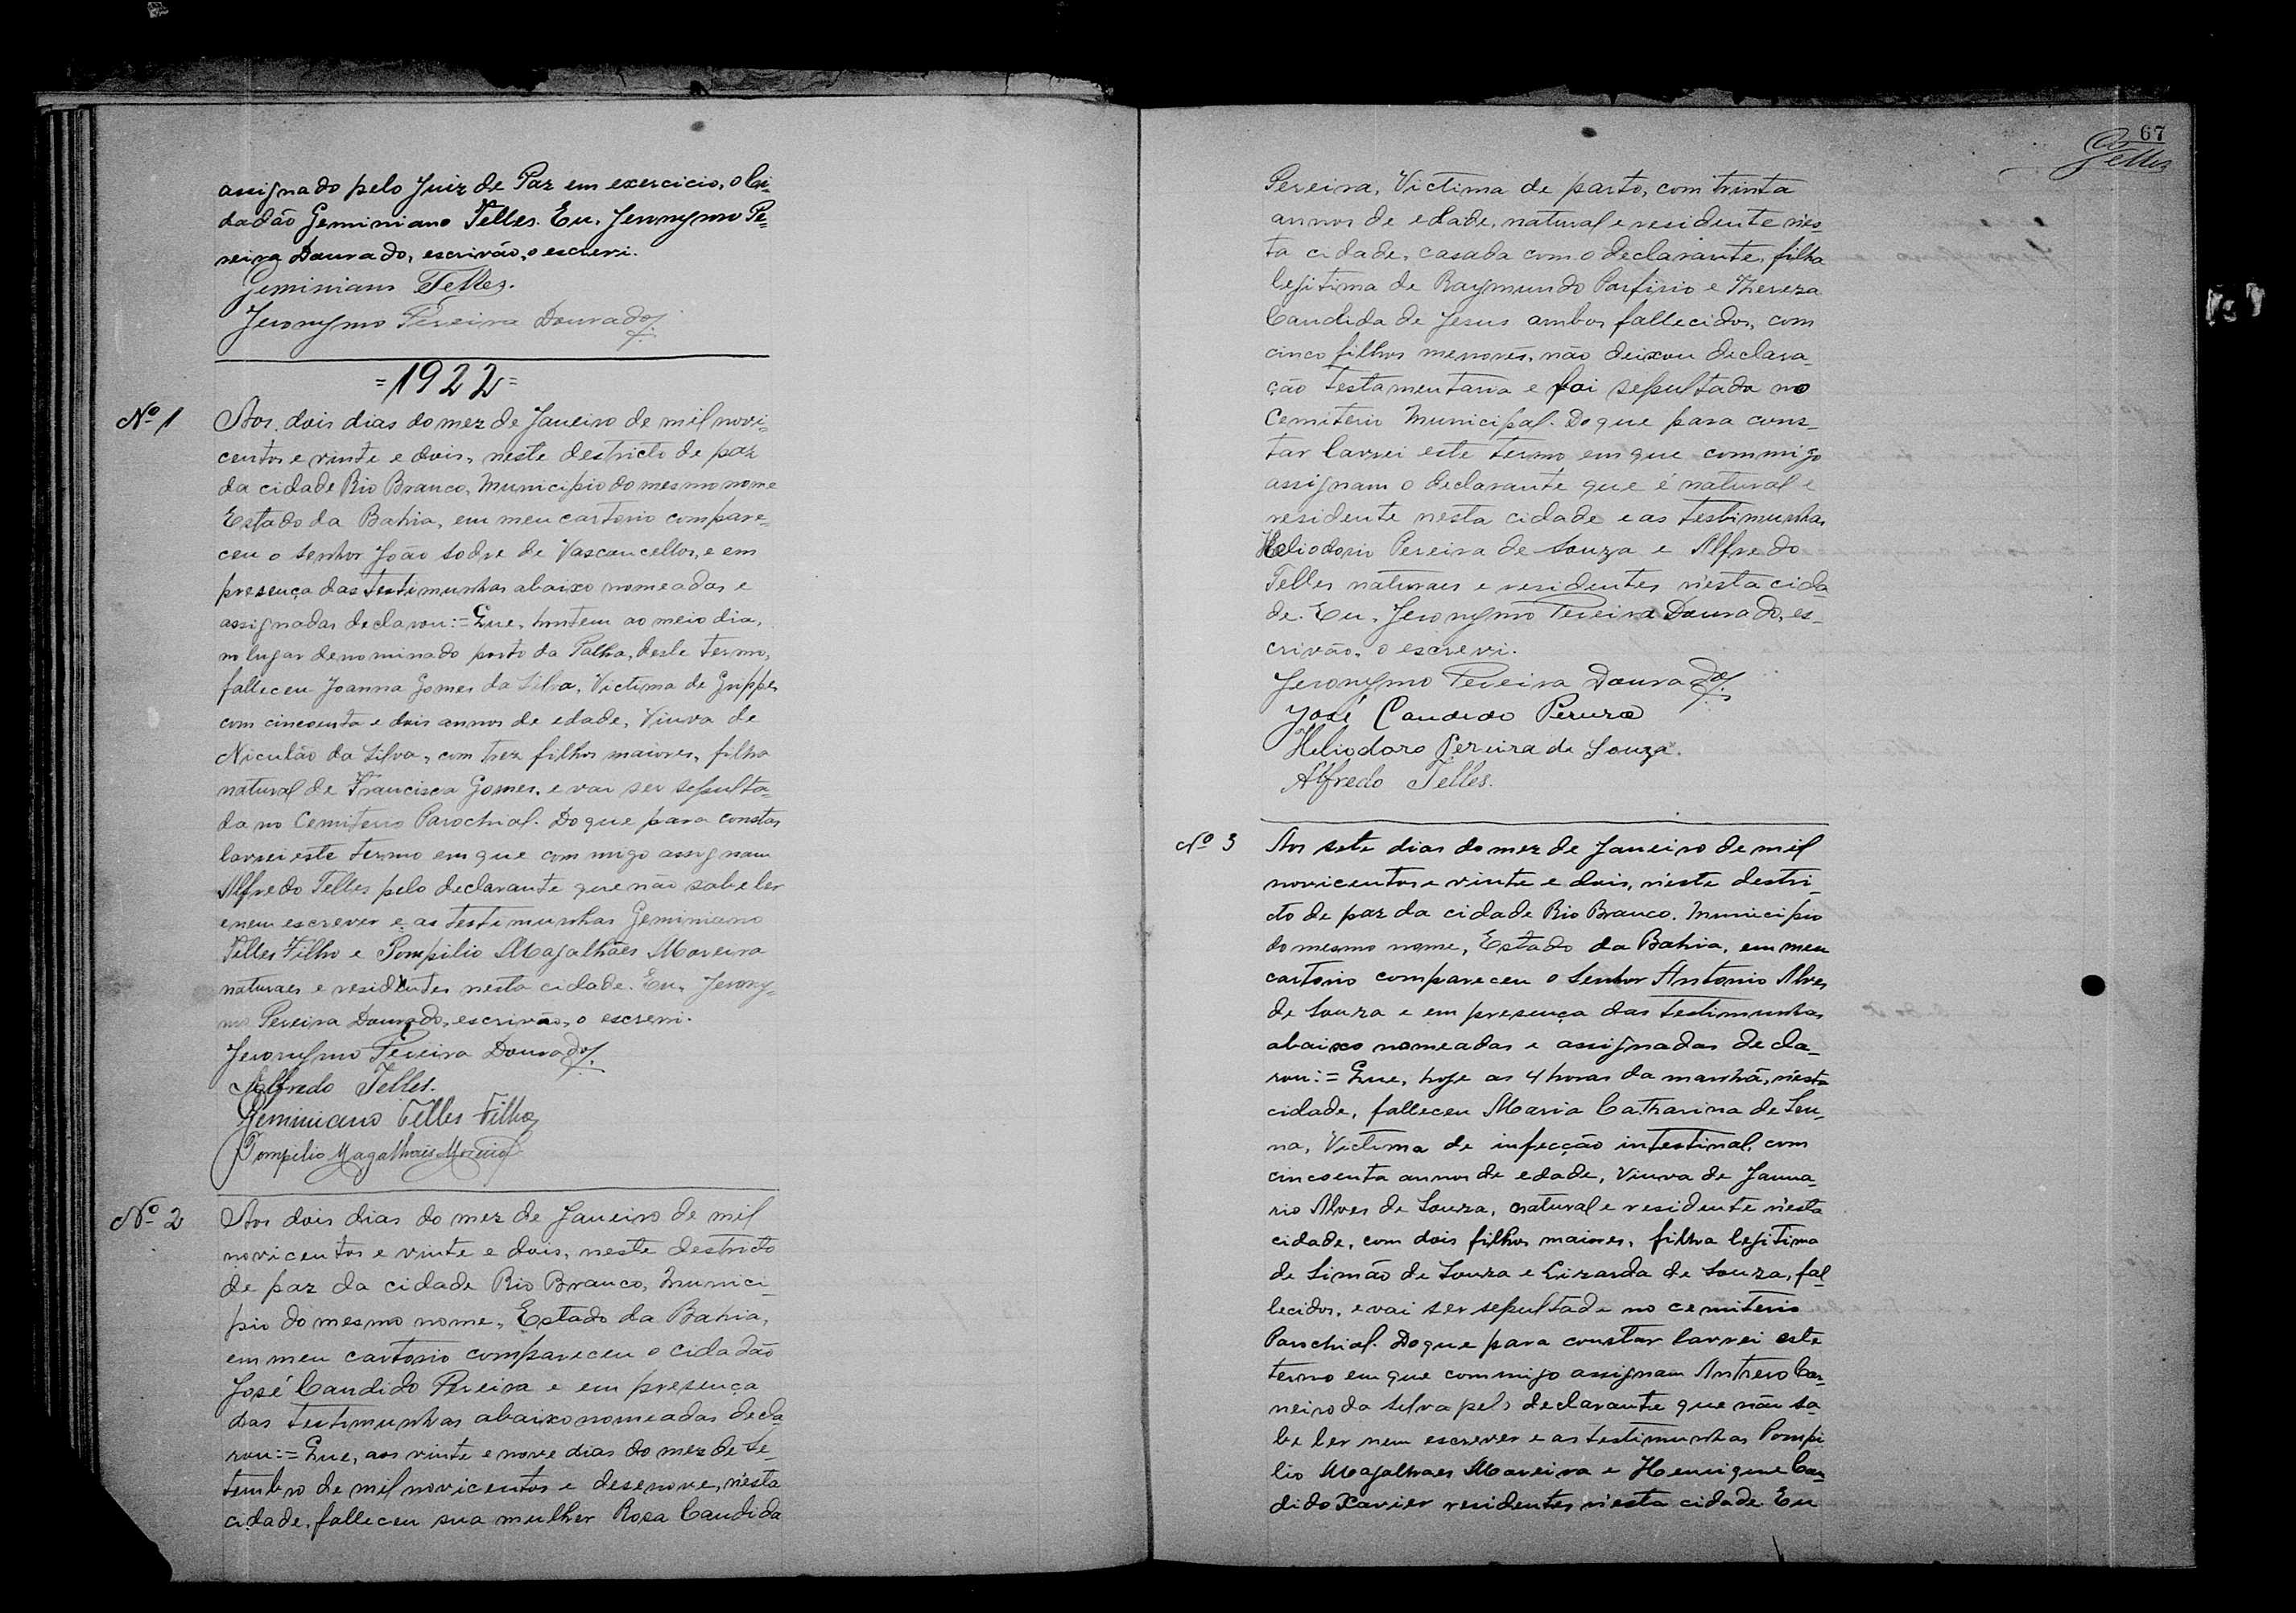 assignado pelo Juiz de Paz em exercicio, o Ci-
dadão Geminiano Telles. Eu, Jeronymo Pe-
reira Dourado, escrivão, o escrevi.
Geminiano Telles.
Jeronymo Pereira Dourado.
=1922=
Nº 1
Aos dois dias do mez de Janeiro de mil novi-
centos e vinte e dois, neste destricto de paz
da cidade Rio Branco, Municipio do mesmo nome
Estado da Bahia, em meu cartorio compare-
ceu o senhor João Sodre de Vasconcellos, e em
presença das testimunhas abaixo nomeadas e
assignadas declarou:= Que, hontem ao meio dia,
no lugar denominado porto da Palha, deste termo,
falleceu Joanna Gomes da Silva, Victima de Grippe,
com cincoenta e dois annos de edade, Viuva de
Niculão da Silva, com trez filhos maiores, filha
natural de Francisca Gomes, e vai ser sepulta-
da no Cemiterio Parochial. Do que para constar
lavrei este termo em que commigo assignam
Alfredo Telles pelo declarante que não sabe ler
e nem escrever e as testimunhas Geminiano
Telles Filho e Pompilio Magalhães Moreira
naturaes e residentes nesta cidade. Eu, Jerony-
mo Pereira Dourado, escrivão, o escrevi.
Jeronymo Pereira Dourado.
Alfredo Telles.
Geminiano Telles Filho
Pompilio Magalhães Moreira
Nº 2
Aos dois dias do mez de Janeiro de mil
novicentos e vinte e dois, neste destricto
de paz da cidade Rio Branco, Munici-
pio do mesmo nome, Estado da Bahia,
em meu cartorio compareceu o cidadão
José Candido Pereira e em presença
das testimunhas abaixo nomeadas decla-
rou:= Que, aos vinte e nove dias do mez de Se-
tembro de mil novicentos e desenove, n'esta
cidade, falleceu sua mulher Rosa Candida
67
Telles
Pereira, Victima de parto, com trinta
annos de edade, natural e residente n'es-
ta cidade, casada com o declarante, filha
legitima de Raymundo Porfirio e Thereza
Candida de Jesus ambos fallecidos, com
cinco filhos menores, não deixou declara-
ção testamentaria e foi sepultada no
Cemiterio Municipal. Do que para cons-
tar lavrei este termo em que commigo
assignam o declarante que é natural e
residente nesta cidade e as testimunhas
Heliodorio Pereira de Souza e Alfredo
Telles naturaes e residentes n'esta cida
de. Eu, Jeronymo Pereira Dourado, es-
crivão, o escrevi.
Jeronymo Pereira Dourado.
José Candido Pereira
Heliodoro Pereira de Souza.
Alfredo Telles.
Nº 3
Aos sete dias do mez de Janeiro de mil
novicentos e vinte e dois, n'este destri-
cto de paz da cidade Rio Branco, Municipio
do mesmo nome, Estado da Bahia, em meu
cartorio compareceu o Senhor Antonio Alves
de Souza e em presença das testimunhas
abaixo nomeadas e assignadas decla-
rou:= Que, hoje as 4 horas da manhã, n'esta
cidade, falleceu Maria Catharina de Sen-
na, Victima de infecção intestinal, com
cincoenta annos de edade, Viuva de Janua-
rio Alves de Souza, natural e residente n'esta
cidade, com dois filhos maiores, filha legitima
de Simão de Souza e Lizarda de Souza, fal-
lecidos, e vai ser sepultada no cemiterio
Parochial. Do que para constar lavrei este
termo em que commigo assignam Antrero Car-
neiro da Silva pelo declarante que não sa-
be ler nem escrever e as testimunhas Pompi
lio Magalhaes Moreira e Henrique Can-
dido Xavier residentes n'esta cidade. Eu